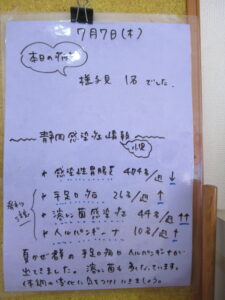 7月7日(木)
本日の病児
様子見 1名でした。
静岡感染症情報
小児
* 感染性胃腸炎 404名/週 ↓
* 手足口病 26名/週 ↑
* 溶レン菌感染症 44名/週 ↑↑
* ヘルパンギーナ 10名/週 ↑
夏かぜ群の手足口病とヘルパンギーナが
出てきました。溶レン菌も多いです。
体調の変化に気をつけていきましょう。